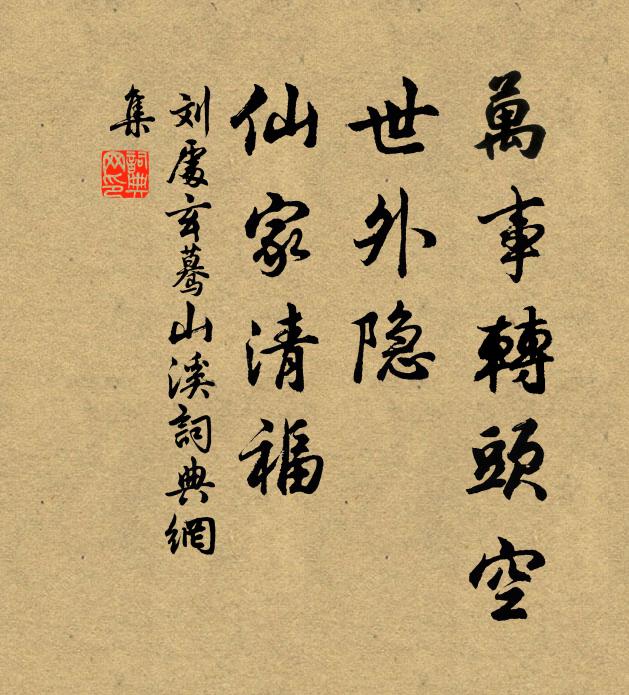 萬事轉頭空
世外隐
仙家清福
刘處玄驀山溪詞典網
集
詞典網印